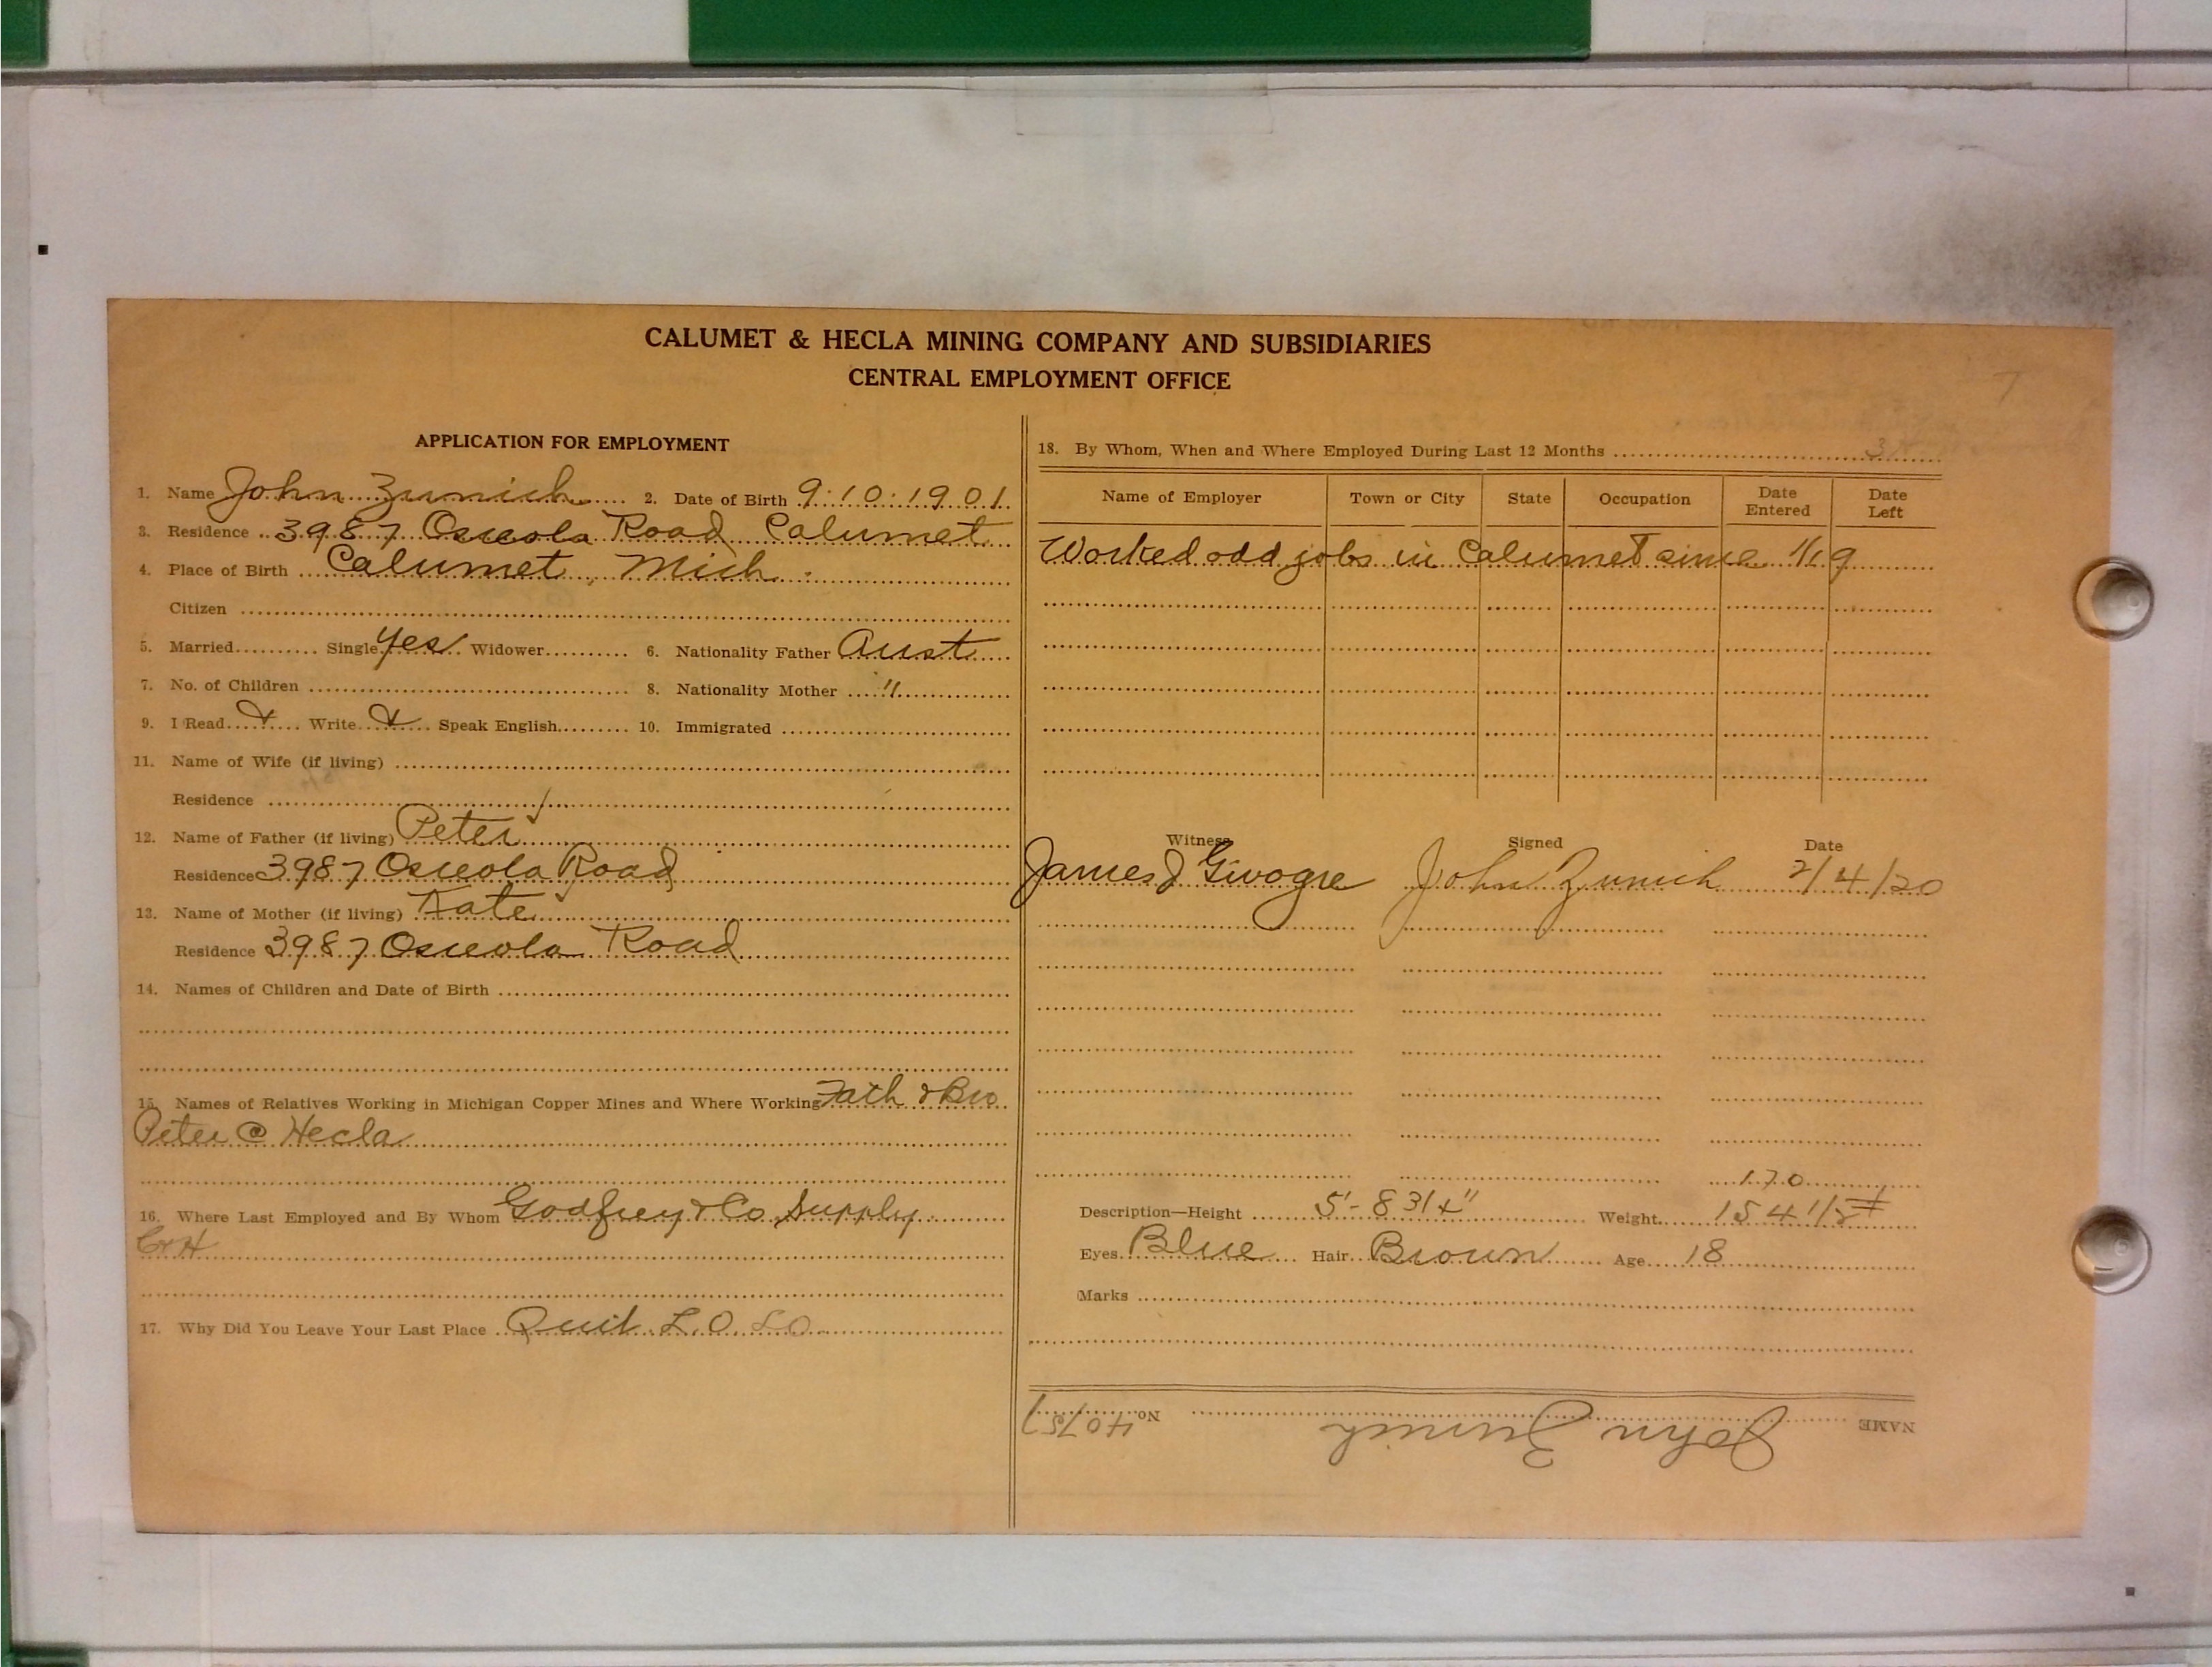 CALUMET & HECLA MINING COMPANY AND SUBSIDIARIES
CENTRAL EMPLOYMENT OFFICE
APPLICATION FOR EMPLOYMENT
1. Name John Zunich 2. Date of Birth 9-10-1901
3. Residence 3987 Osceola Road Calumet
4. Place of Birth Calumet, Mich.
Citizen
5. Married Single Yes Widower 6. Nationality Father Aust
7. No. of Children 8. Nationality Mother "
9. I Read Write Speak English 10. Immigrated
11. Name of Wife (if living)
Residence
12. Name of Father (if living) Peter
Residence 3987 Osceola Road
13. Name of Mother (if living) Kate
Residence 3987 Osceola Road
14. Names of Children and Date of Birth
15. Names of Relatives Working in Michigan Copper Mines and Where Working Fath & Bro
Peter @ Hecla
16. Where Last Employed and By Whom Godfrey & Co Supply
C & H
17. Why Did You Leave Your Last Place Quit L.O. LO
18. By Whom, When and Where Employed During Last 12 Months
Name of Employer Town or City State Occupation Date Entered Date Left
Worked odd jobs in Calumet since 1/19
Witness Signed Date
James J John Zunich 2/4/20
170
Description—Height 5'-8 3/4" Weight 154 1/2 #
Eyes Blue Hair Brown Age 18
Marks
NAME John Zunich No. 40757